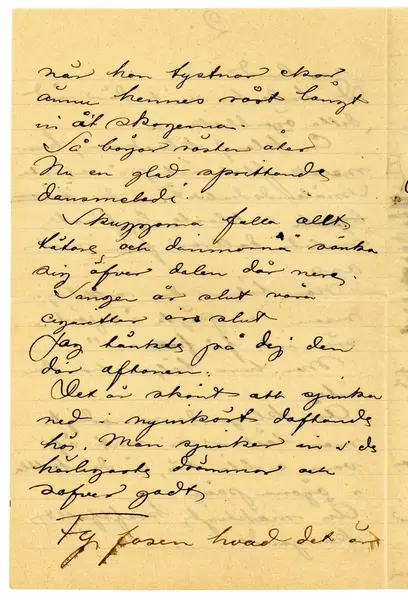 när hon tystnar ekar
ännu hennes röst långt
in åt skogarna.
Så börjar rösten åter
Nu en glad sprittande
dansmelodi.
Skuggorna falla allt
tätare och dimmorna sänka
sig öfver dalen där nere.
Sången är slut våra
cigaretter äro slut
Jag tänkte på dig den
där aftonen.
Det är skönt att sjunka
ned i nyinkört doftande
hö. Man sjunker in i de
härligaste drömmar och
sofver godt
Fy fasen hvad det är